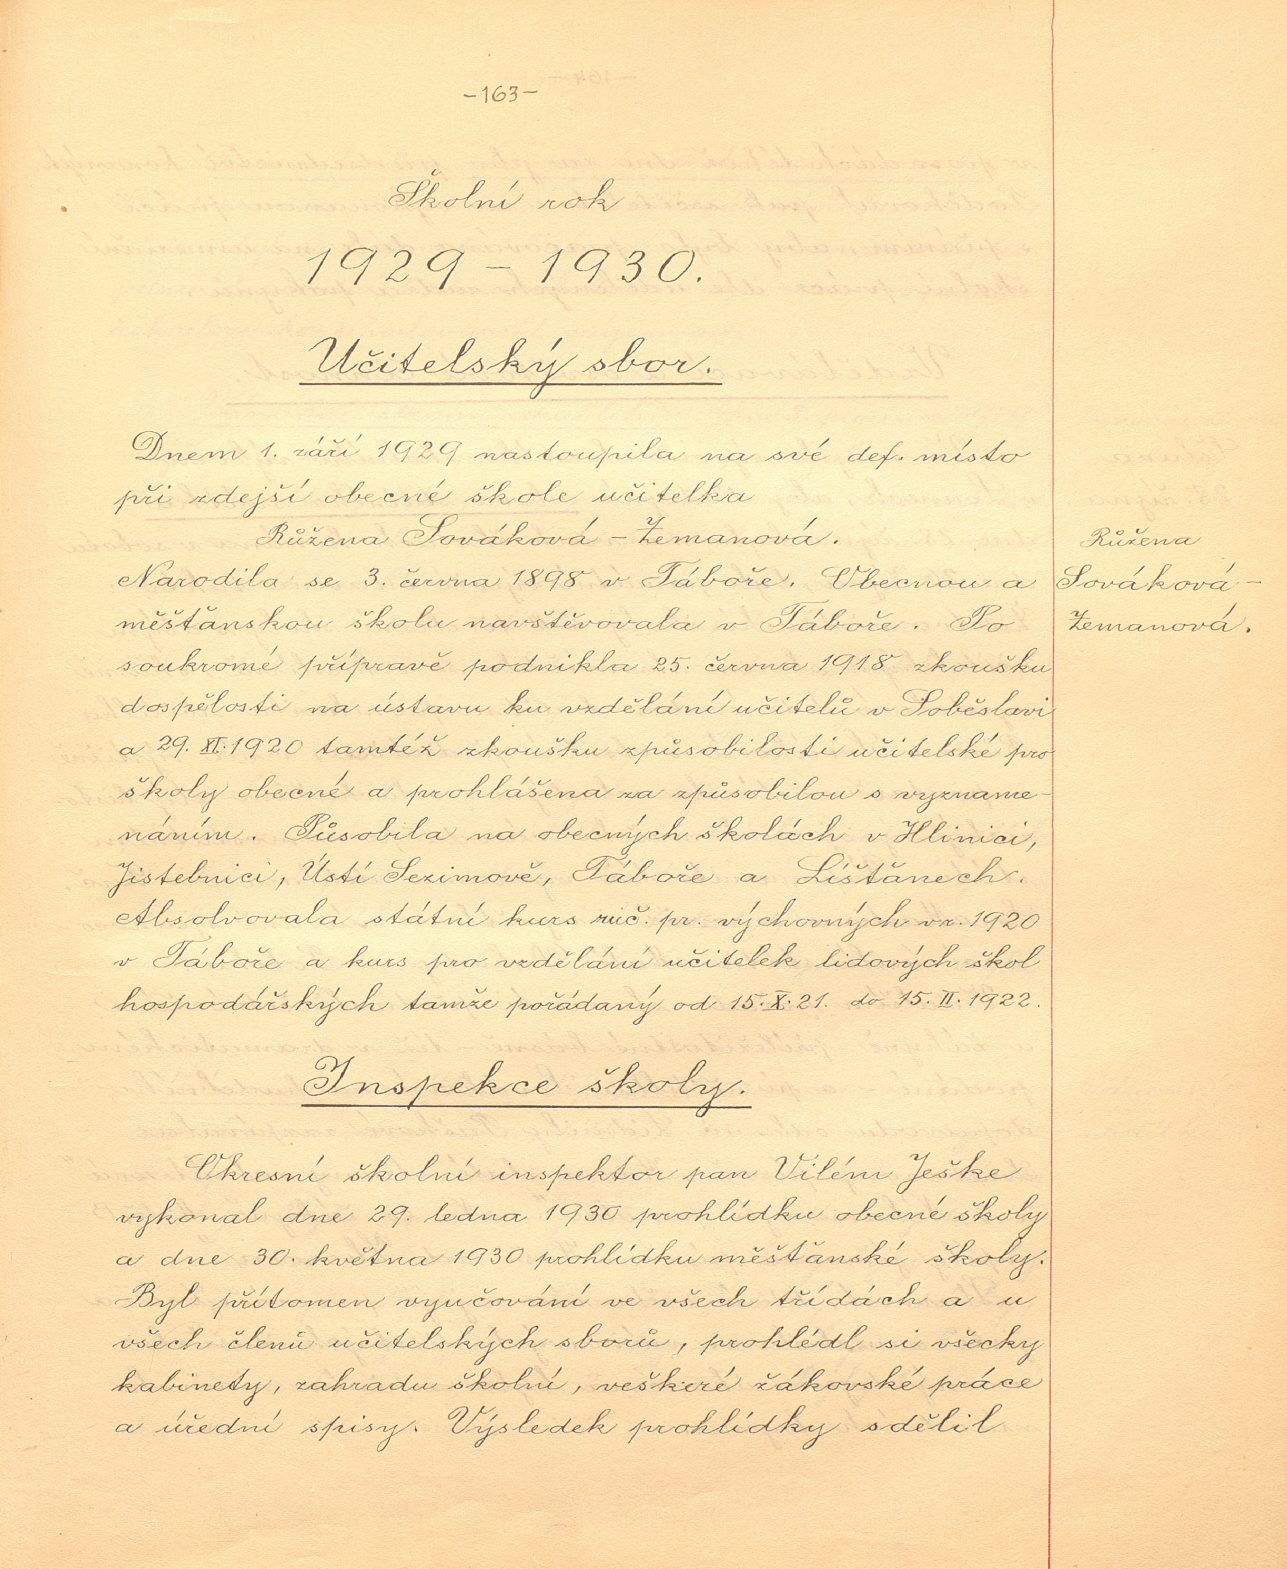 -163-
Školní rok
1929 - 1930.
Učitelský sbor.
Dnem 1. září 1929 nastoupila na své def. místo
při zdejší obecné škole učitelka
Růžena Sováková - Zemanová.
Narodila se 3. června 1898 v Táboře. Obecnou a
měšťanskou školu navštěvovala v Táboře. Po
soukromé přípravě podnikla 25. června 1918 zkoušku
dospělosti na ústavu ku vzdělání učitelů v Soběslavi
a 29. XI. 1920 tamtéž zkoušku způsobilosti učitelské pro
školy obecné a prohlášena za způsobilou s vyzname-
náním. Působila na obecných školách v Hlinici,
Jistebnici, Ústí Sezimově, Táboře a Líšťanech.
Absolvovala státní kurs ruč. pr. výchovných vr. 1920
v Táboře a kurs pro vzdělání učitelek lidových škol
hospodářských tamže pořádaný od 15. X. 21. do 15. II. 1922.
Růžena
Sováková -
Zemanová.
Inspekce školy.
Okresní školní inspektor pan Vilém Ješke
vykonal dne 29. ledna 1930 prohlídku obecné školy
a dne 30. května 1930 prohlídku měšťanské školy.
Byl přítomen vyučování ve všech třídách a u
všech členů učitelských sborů, prohlédl si všecky
kabinety, zahradu školní, veškeré žákovské práce
a úřední spisy. Výsledek prohlídky sdělil